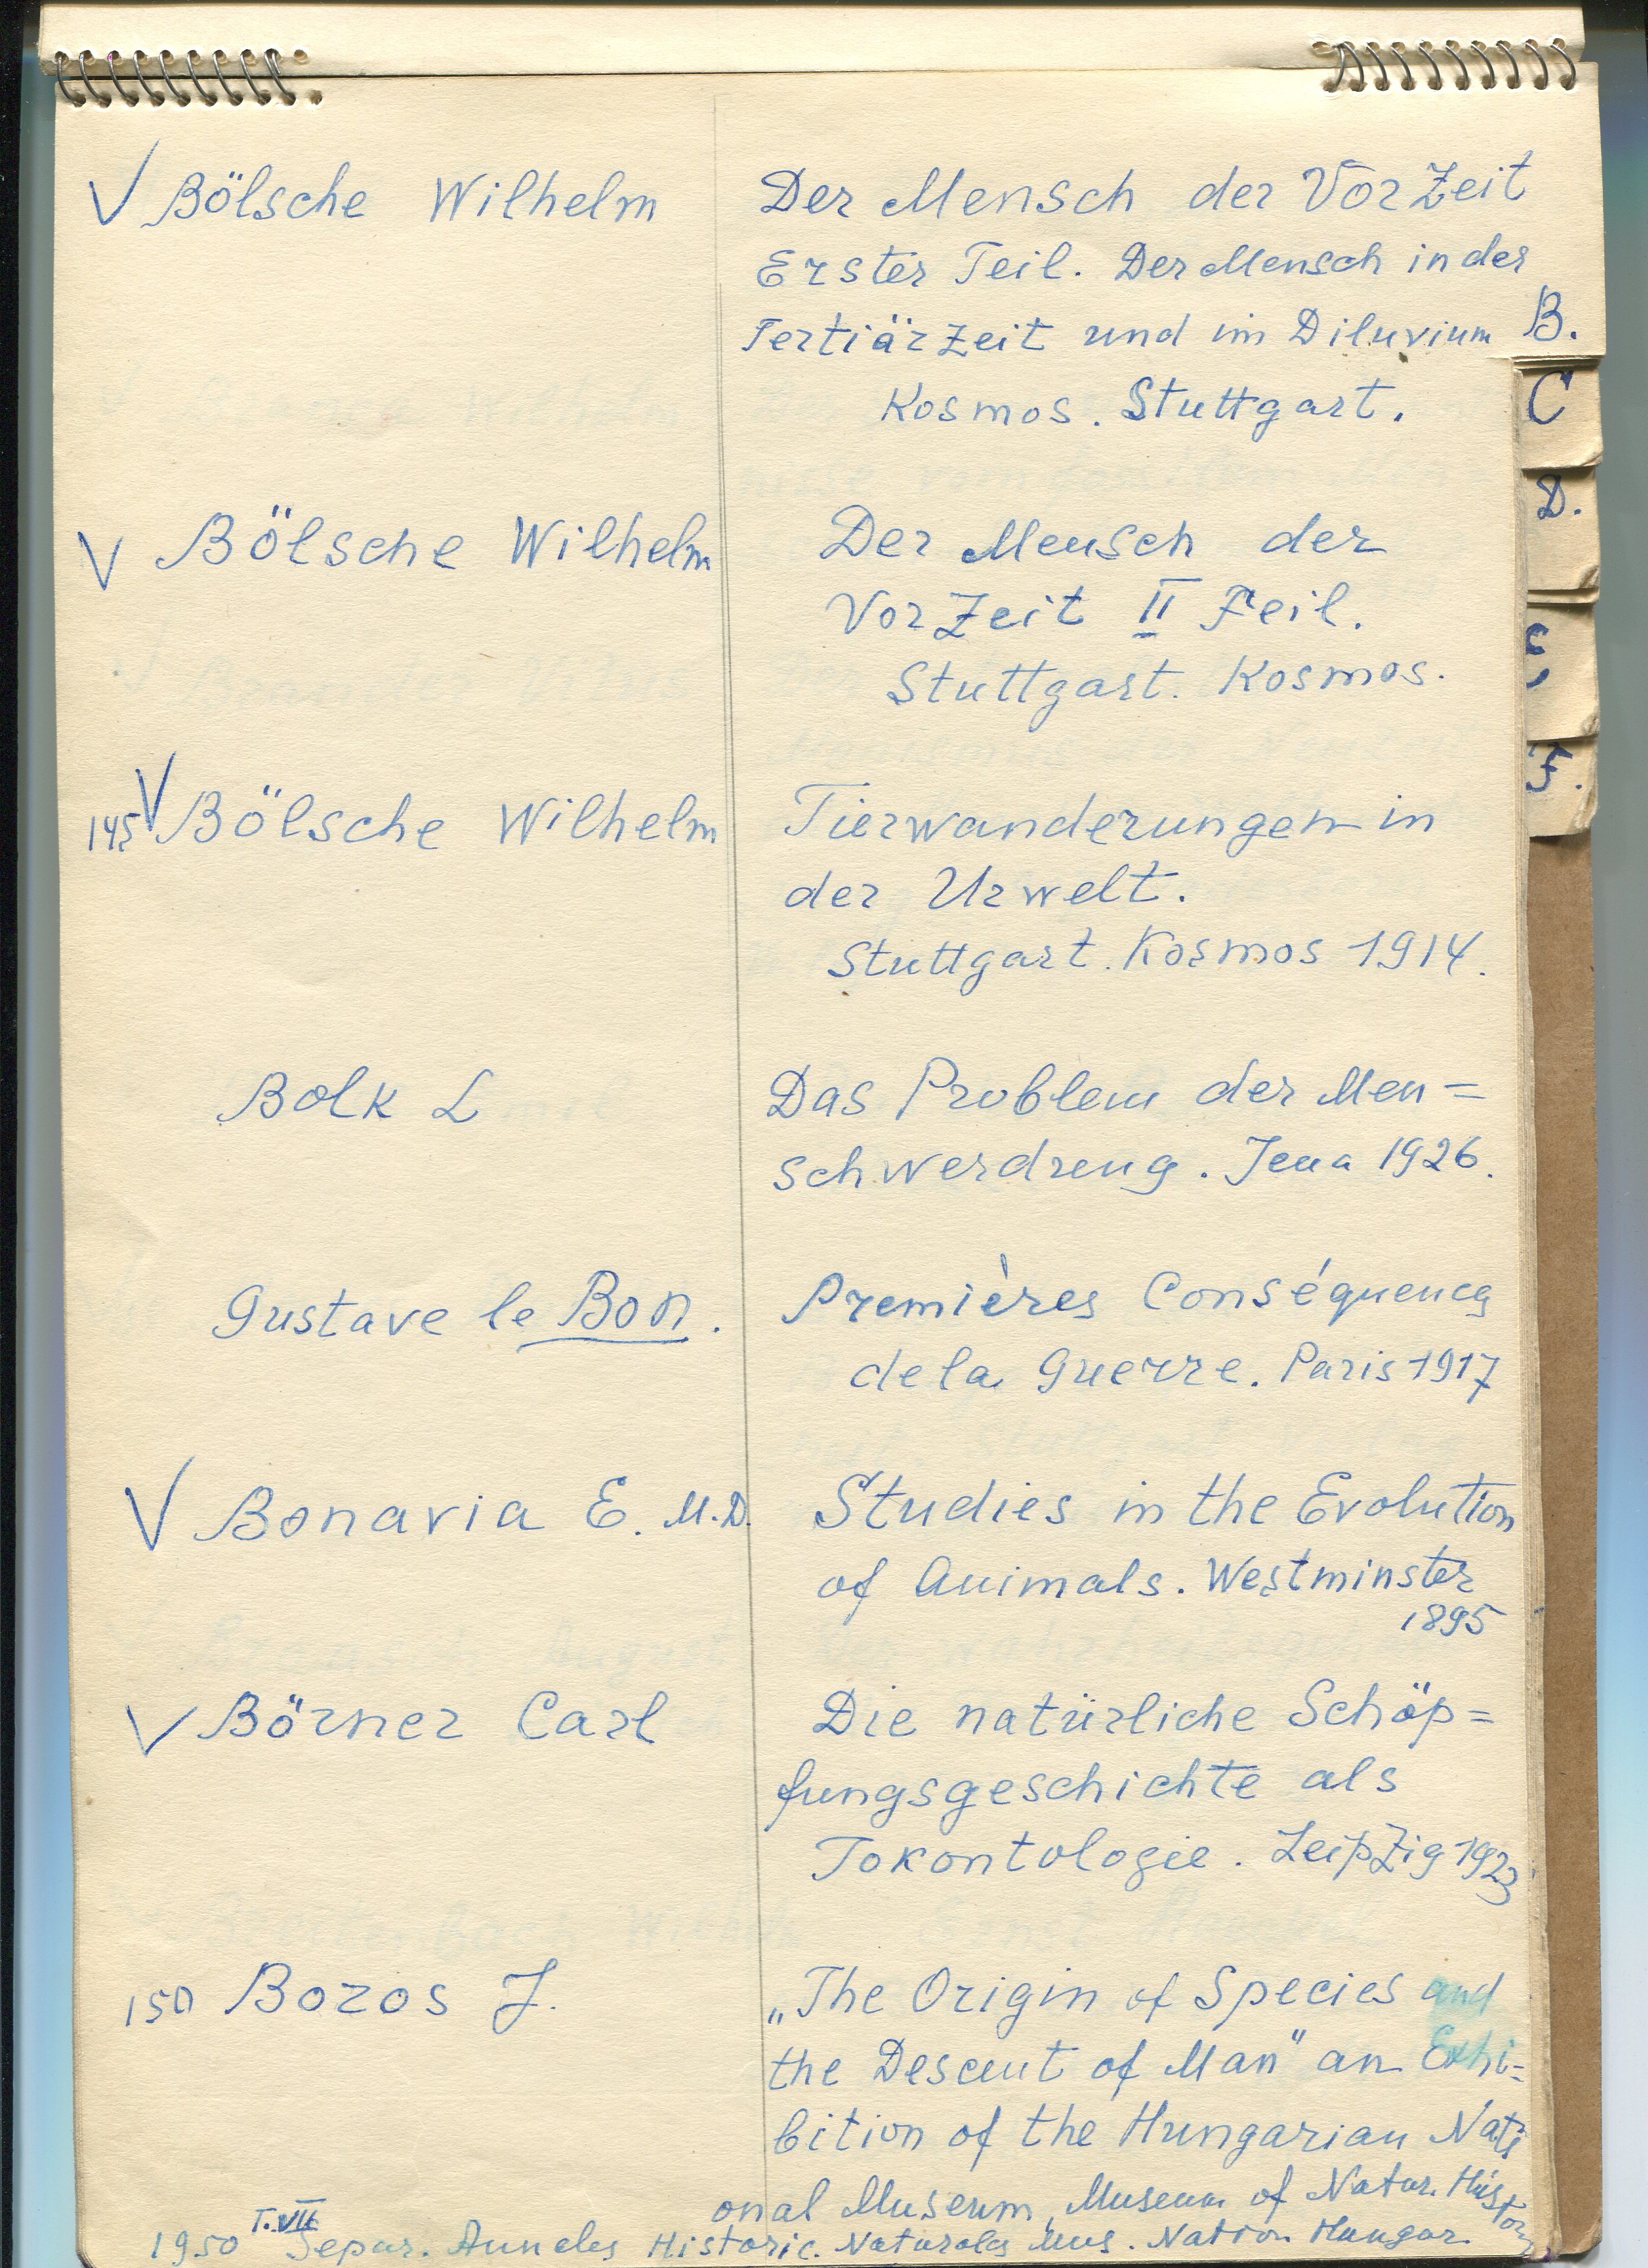 V Bölsche Wilhelm Der Mensch der VorZeit
Erster Teil. Der Mensch in der
TertiärZeit und im Diluvium B.
Kosmos. Stuttgart. C
V Bölsche Wilhelm Der Mensch der D.
VorZeit II Teil.
Stuttgart. Kosmos.
145 V Bölsche Wilhelm Tierwanderungen in F.
der Urwelt.
Stuttgart. Kosmos 1914.
Bolk L Das Problem der Men=
schwerdung. Jena 1926.
Gustave le Bon. Premières Conséquences
de la Guerre. Paris 1917
V Bonavia E. M.D. Studies in the Evolution
of Animals. Westminster
1895
V Börner Carl Die natürliche Schöp=
fungsgeschichte als
Tokontologie. LeipZig 1923
150 Boros J. „The Origin of Species and
the Descent of Man" an Exhi=
bition of the Hungarian Nati
onal Museum, Museum of Natur. History
1950 T. VII Separ. Annales Historic. Naturales Mus. Nation. Hungar.